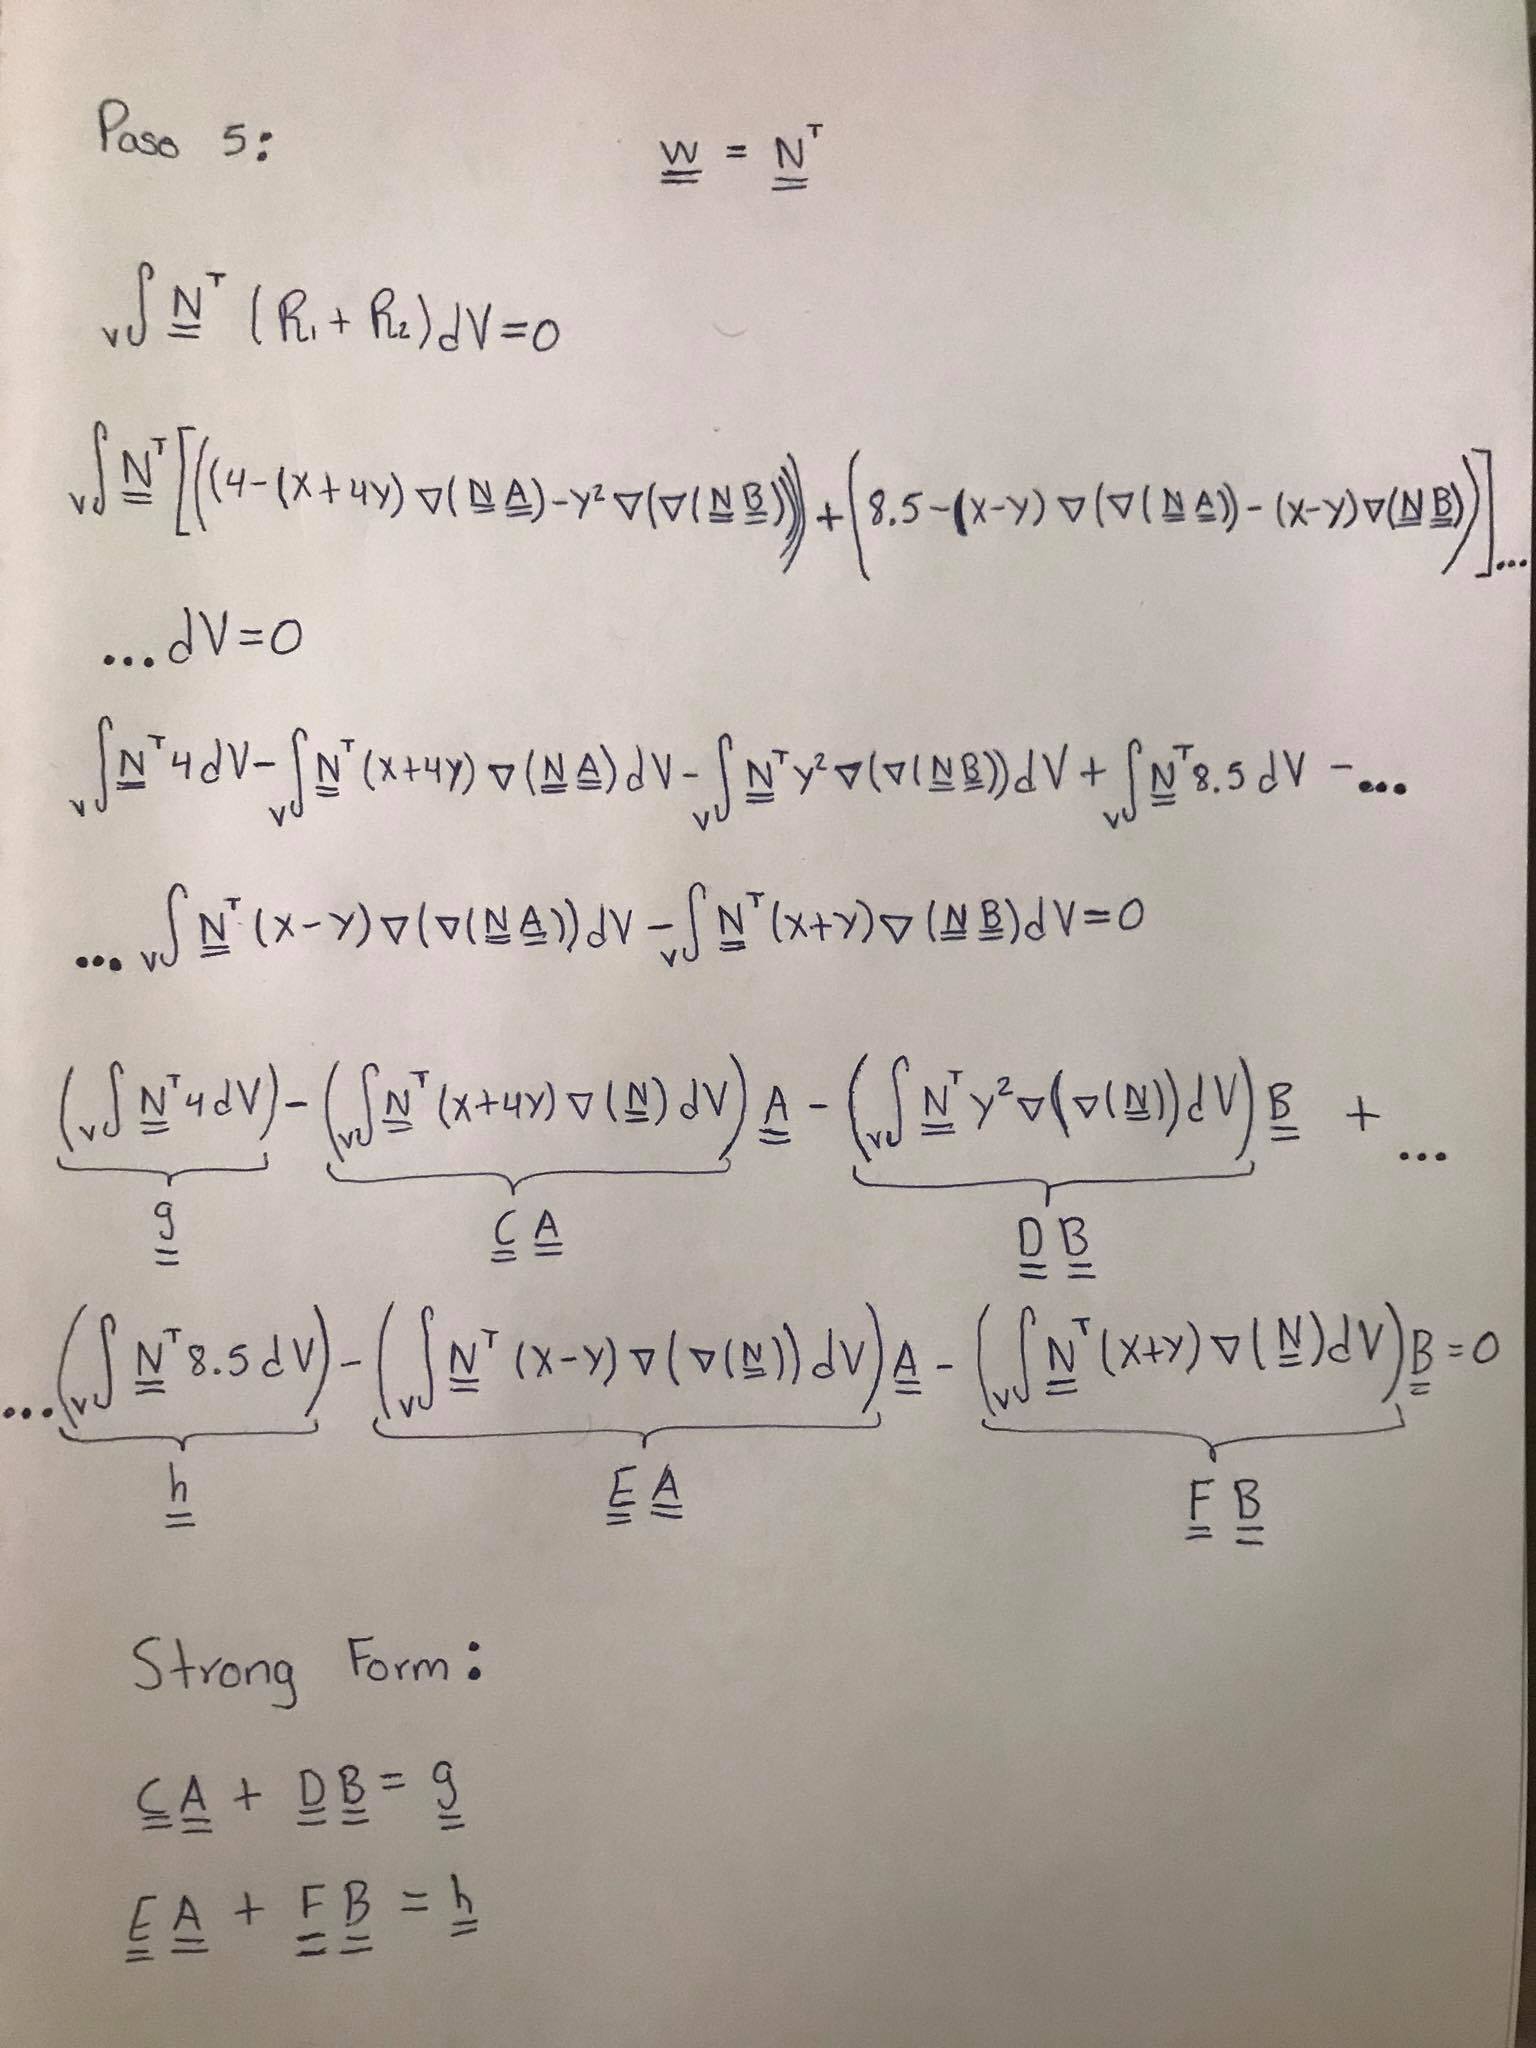 Paso 5:
W = Nᵀ
ᵥ∫ Nᵀ (R₁ + R₂) dV = 0
ᵥ∫ Nᵀ [((4-(x+4y) ∇(N A) - y² ∇(∇(N B))) + (8.5-(x-y) ∇(∇(N A)) - (x-y) ∇(N B))] ...
... dV = 0
ᵥ∫ Nᵀ 4 dV - ᵥ∫ Nᵀ (x+4y) ∇(N A) dV - ᵥ∫ Nᵀ y² ∇(∇(N B)) dV + ᵥ∫ Nᵀ 8.5 dV - ...
... ᵥ∫ Nᵀ (x-y) ∇(∇(N A)) dV - ᵥ∫ Nᵀ (x+y) ∇(N B) dV = 0
(ᵥ∫ Nᵀ 4 dV) - (ᵥ∫ Nᵀ (x+4y) ∇(N) dV) A - (ᵥ∫ Nᵀ y² ∇(∇(N)) dV) B + ...
g C A D B
... (ᵥ∫ Nᵀ 8.5 dV) - (ᵥ∫ Nᵀ (x-y) ∇(∇(N)) dV) A - (ᵥ∫ Nᵀ (x+y) ∇(N) dV) B = 0
h E A F B
Strong Form:
C A + D B = g
E A + F B = h